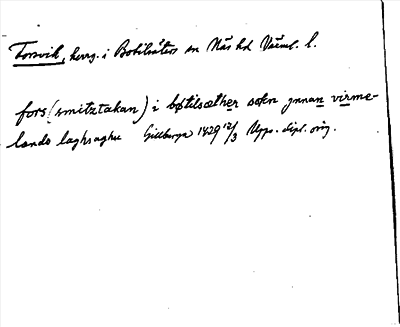 Forsvik, herrg. i Botilsäters sn Näs hd Värml. l.
fors (smitztakan) i bøtilsæther sokn jnnan virme-
lands laghsaghu Gillberga 1429 12/3 Upps. dipl. orig.